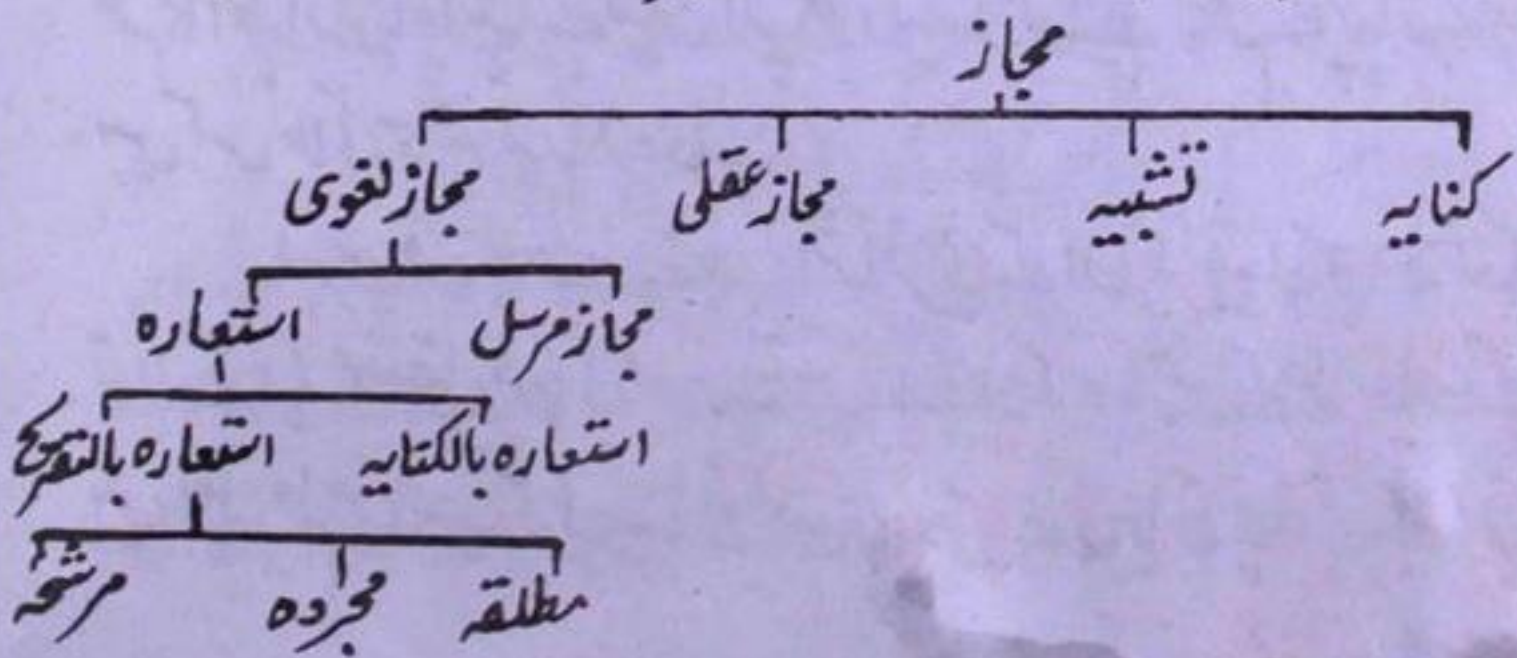 مجاز
کنایہ تشبیہ مجاز عقلی مجاز لغوی
مجاز مرسل استعارہ
استعارہ بالکنایہ استعارہ بالتصریح
مطلقہ مجردہ مرشحہ